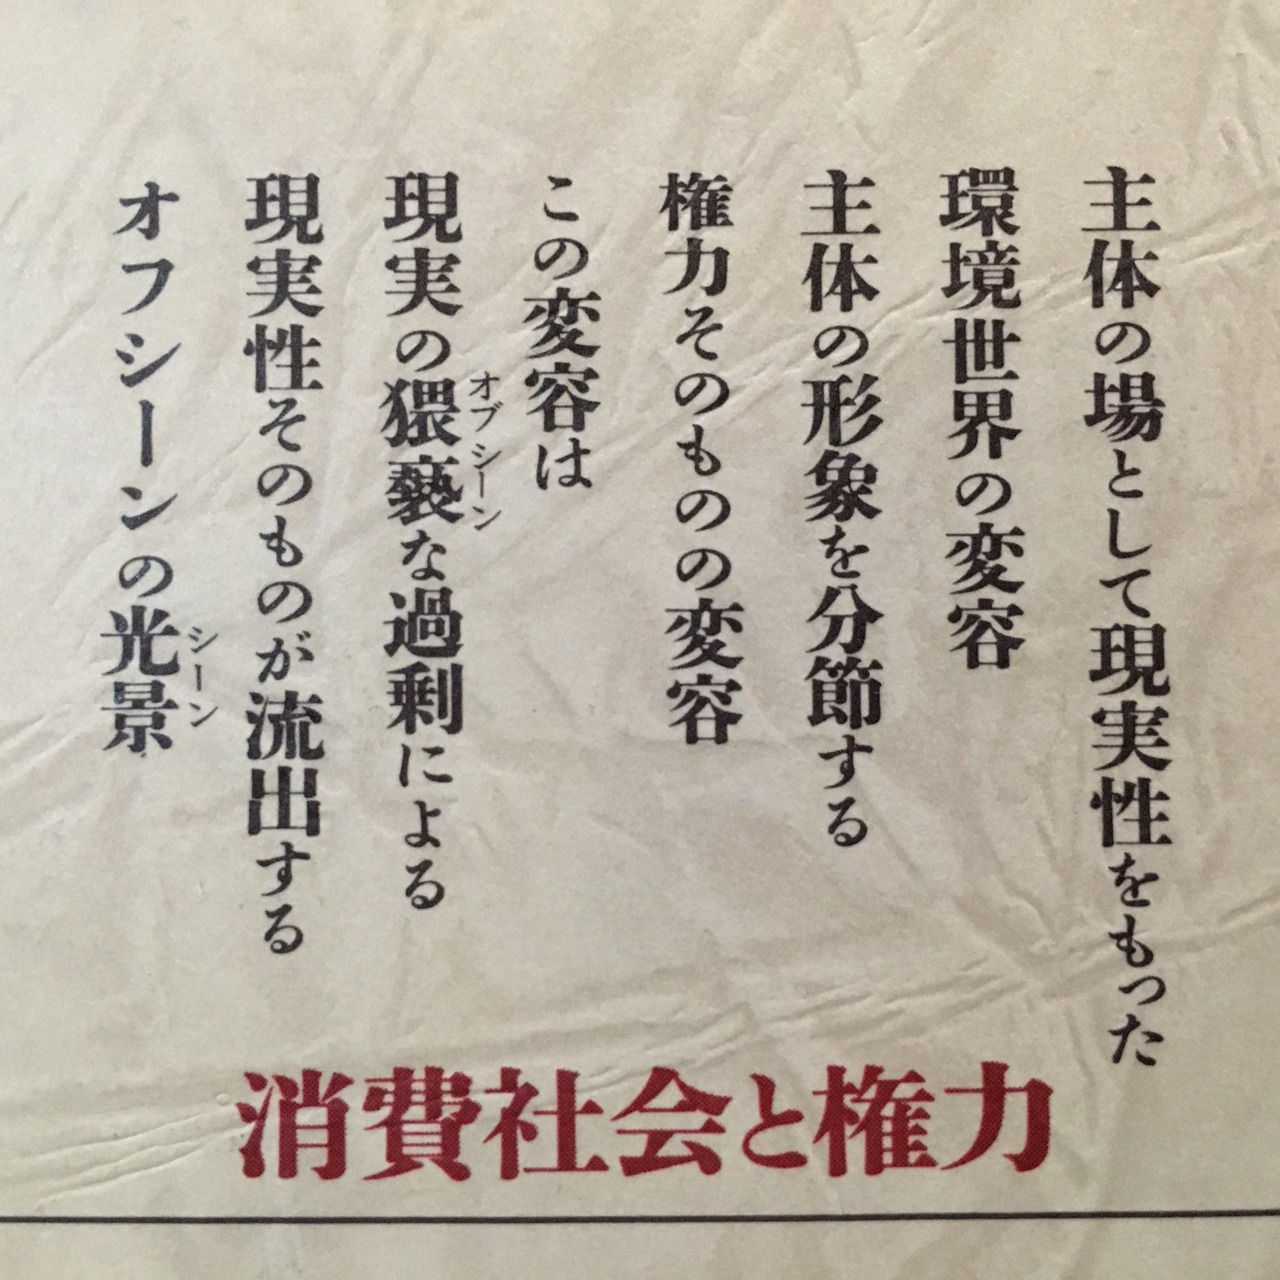 主体の場として現実性をもった
環境世界の変容
主体の形象を分節する
権力そのものの変容
この変容は
現実の猥褻な過剰による
オブシーン
現実性そのものが流出する
オフシーンの光景
シーン
消費社会と権力